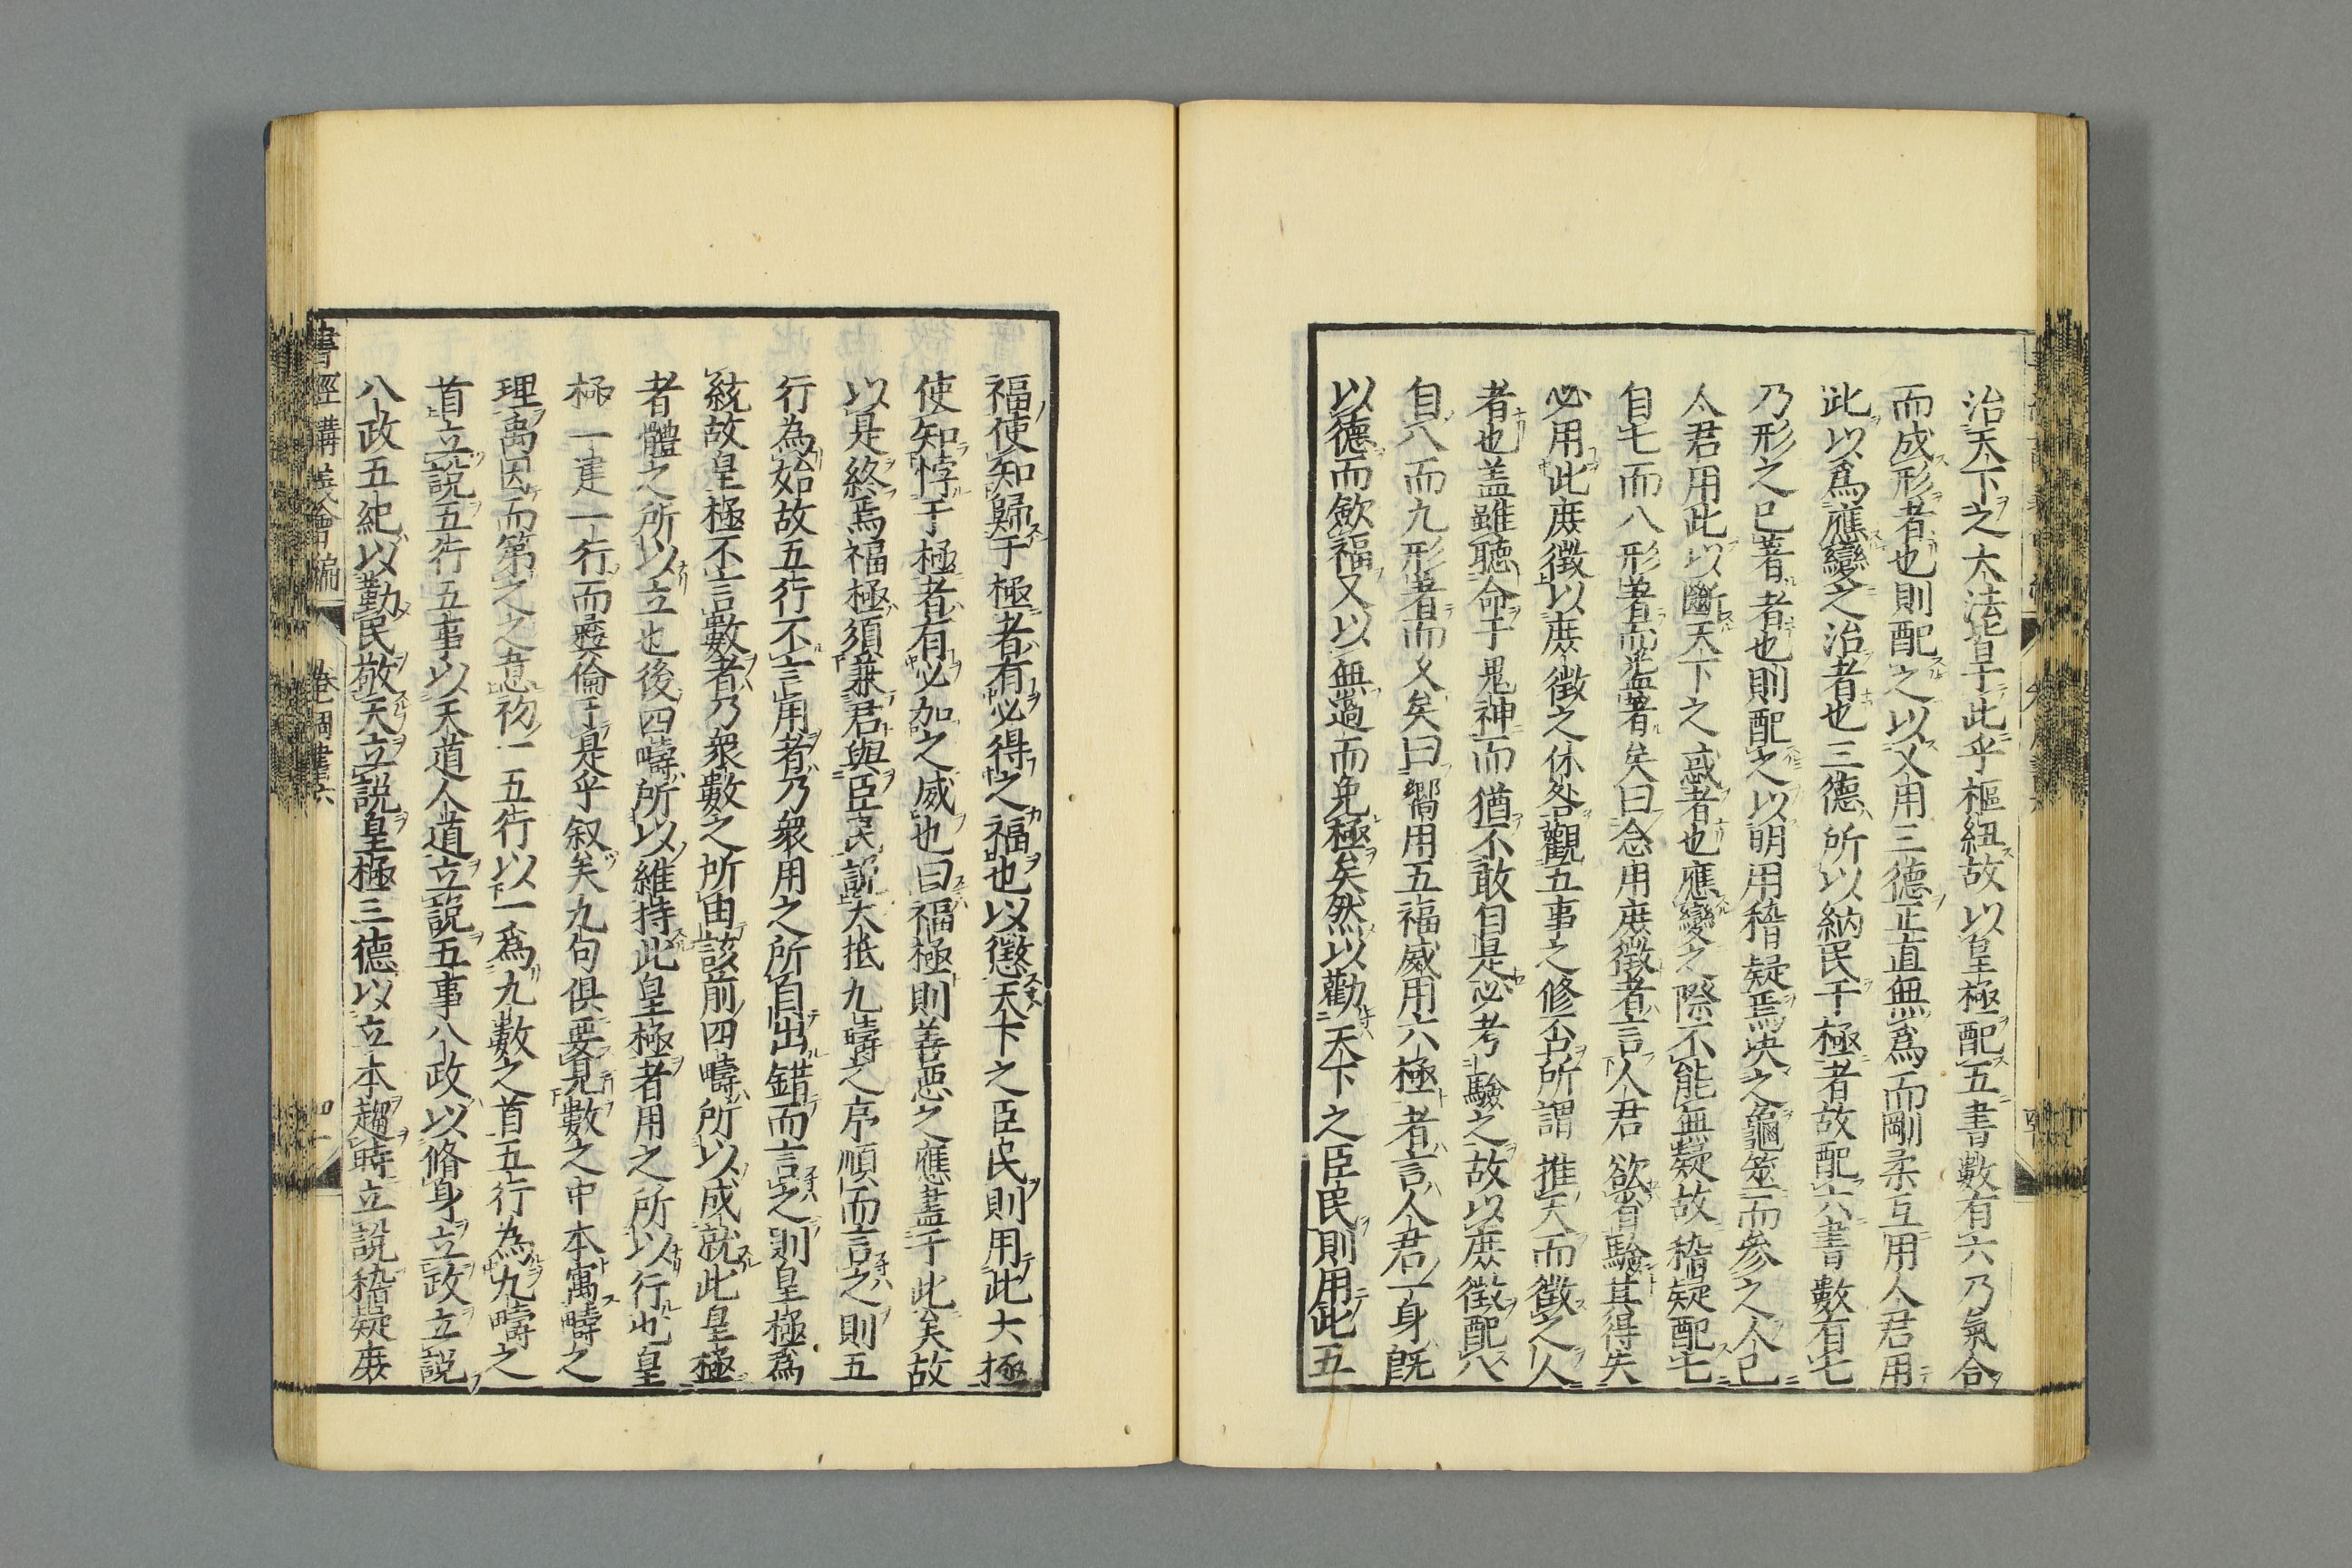 治天下之大法皆于此乎樞紐故以皇極配五書數有六乃氣合
而成形者也則配之以乂用三德正直無爲而剛柔互用人君用
此以爲應變之治者也三德所以納民于極者故配六書數有七
乃形之已著者也則配之以明用稽疑焉决之龜筮而參之人已
人君用此以斷天下之惑者也應變之際不能無疑故稽疑配七
自七而八形著而益著矣曰念用庶徵者言人君欲省驗其得失
必用此庶徵以庶徵之休咎觀五事之修否所謂推天而徵之人
者也盖雖聽命于鬼神而猶不敢自是必考驗之故以庶徵配八
自八而九形著而乂矣曰嚮用五福威用六極者言人君一身旣
以德而歛福又以無過而免極矣然以勸天下之臣民則用此五
福使知歸于極者有必得之福也以懲天下之臣民則用此大極
使知悖于極者有必加之威也曰福極則善惡之應盡于此矣故
以是終焉福極須兼君與臣民說大抵九疇之序順而言之則五
行為始故五行不言用者乃衆用之所自出錯而言之則皇極爲
統故皇極不言數者乃衆數之所由該前四疇所以成就此皇極
者體之所以立也後四疇所以維持此皇極者用之所以行也皇
極一建一行而彛倫于是乎叙矣九句俱要見數之中本寓疇之
理禹因而第之之意初一五行以一爲九數之首五行為九疇之
首立說五行五事以天道人道立說五事八政以脩身立政立說
八政五紀以勤民敬天立說皇極三德以立本趨時立說稽疑庶
書經講義會編 卷 周書六